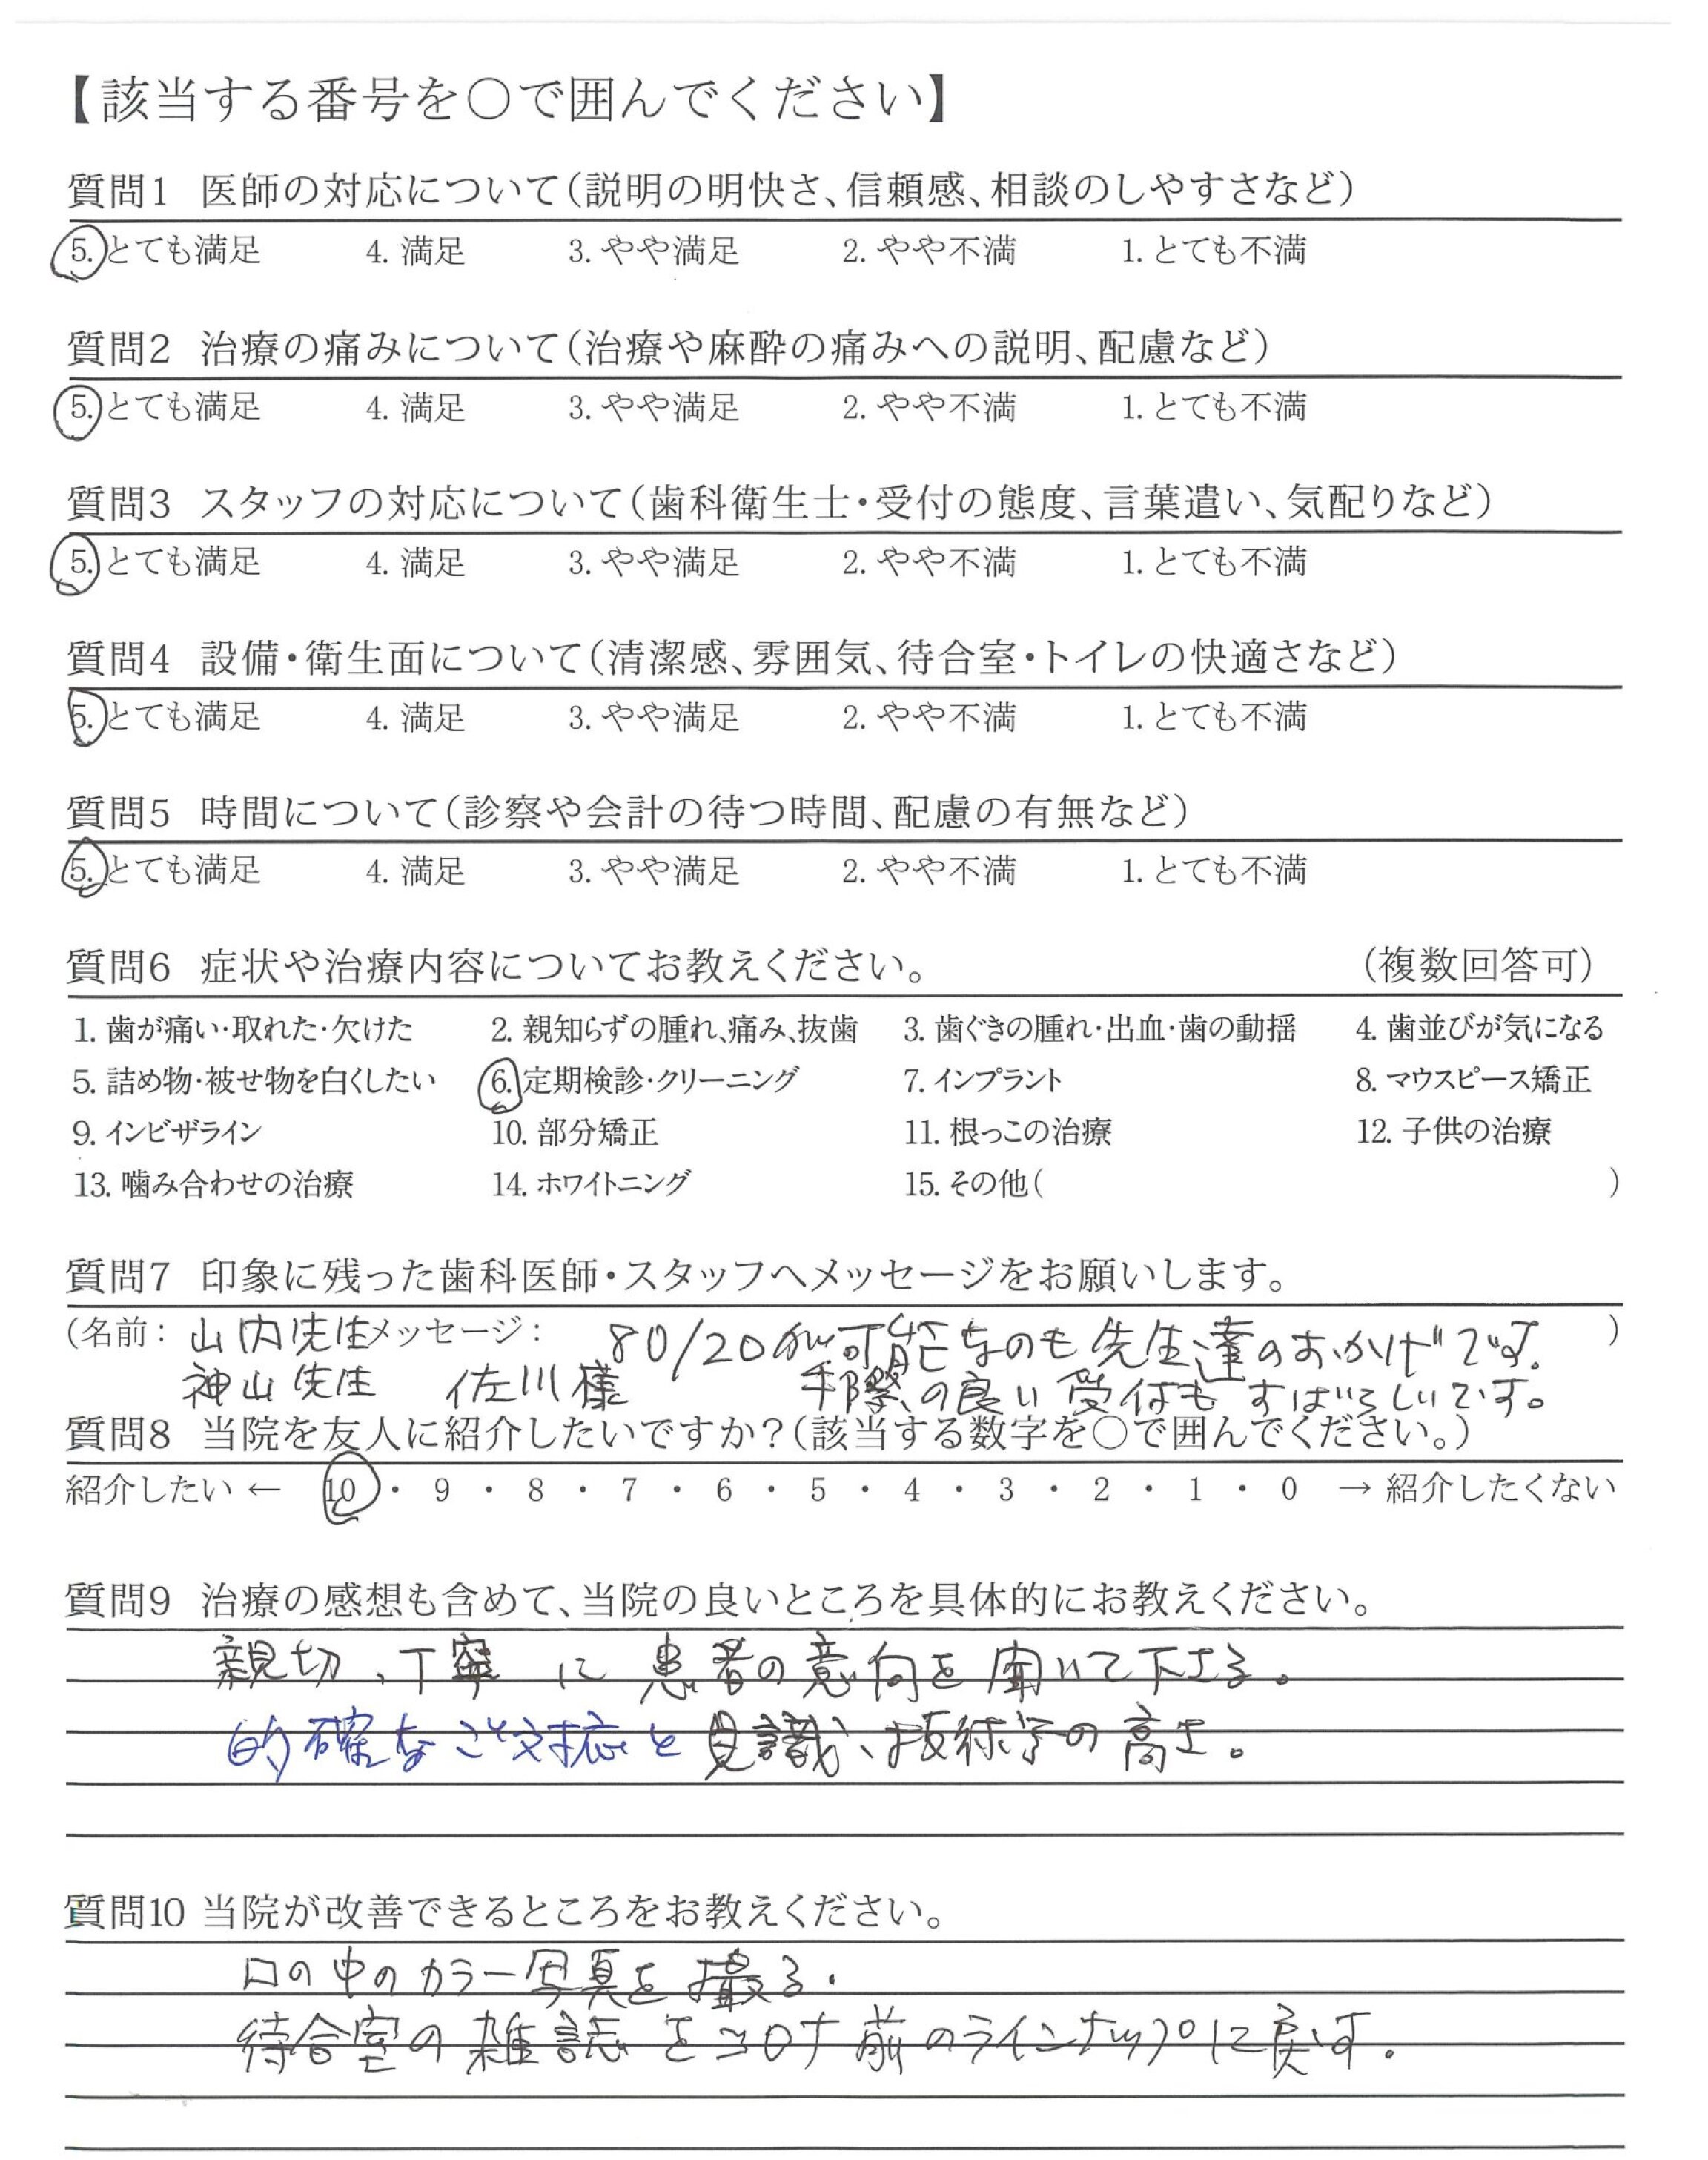 【該当する番号を○で囲んでください】
質問1 医師の対応について（説明の明快さ、信頼感、相談のしやすさなど）
5. とても満足 4. 満足 3. やや満足 2. やや不満 1. とても不満
質問2 治療の痛みについて（治療や麻酔の痛みへの説明、配慮など）
5. とても満足 4. 満足 3. やや満足 2. やや不満 1. とても不満
質問3 スタッフの対応について（歯科衛生士・受付の態度、言葉遣い、気配りなど）
5. とても満足 4. 満足 3. やや満足 2. やや不満 1. とても不満
質問4 設備・衛生面について（清潔感、雰囲気、待合室・トイレの快適さなど）
5. とても満足 4. 満足 3. やや満足 2. やや不満 1. とても不満
質問5 時間について（診察や会計の待つ時間、配慮の有無など）
5. とても満足 4. 満足 3. やや満足 2. やや不満 1. とても不満
質問6 症状や治療内容についてお教えください。 （複数回答可）
1. 歯が痛い・取れた・欠けた 2. 親知らずの腫れ、痛み、抜歯 3. 歯ぐきの腫れ・出血・歯の動揺 4. 歯並びが気になる
5. 詰め物・被せ物を白くしたい 6. 定期検診・クリーニング 7. インプラント 8. マウスピース矯正
9. インビザライン 10. 部分矯正 11. 根っこの治療 12. 子供の治療
13. 噛み合わせの治療 14. ホワイトニング 15. その他（ ）
質問7 印象に残った歯科医師・スタッフへメッセージをお願いします。
（名前： 山内先生 メッセージ： 80/20が可能なのも先生達のおかげです。 ）
神山先生 佐川様 手際の良い受付もすばらしいです。
質問8 当院を友人に紹介したいですか？（該当する数字を○で囲んでください。）
紹介したい ← 10 ・ 9 ・ 8 ・ 7 ・ 6 ・ 5 ・ 4 ・ 3 ・ 2 ・ 1 ・ 0 → 紹介したくない
質問9 治療の感想も含めて、当院の良いところを具体的にお教えください。
親切、丁寧に患者の意向を聞いて下さる。
的確なご対応と見識、技術等の高さ。
質問10 当院が改善できるところをお教えください。
口の中のカラー写真を撮る．
待合室の雑誌をコロナ前のラインナップに戻す．